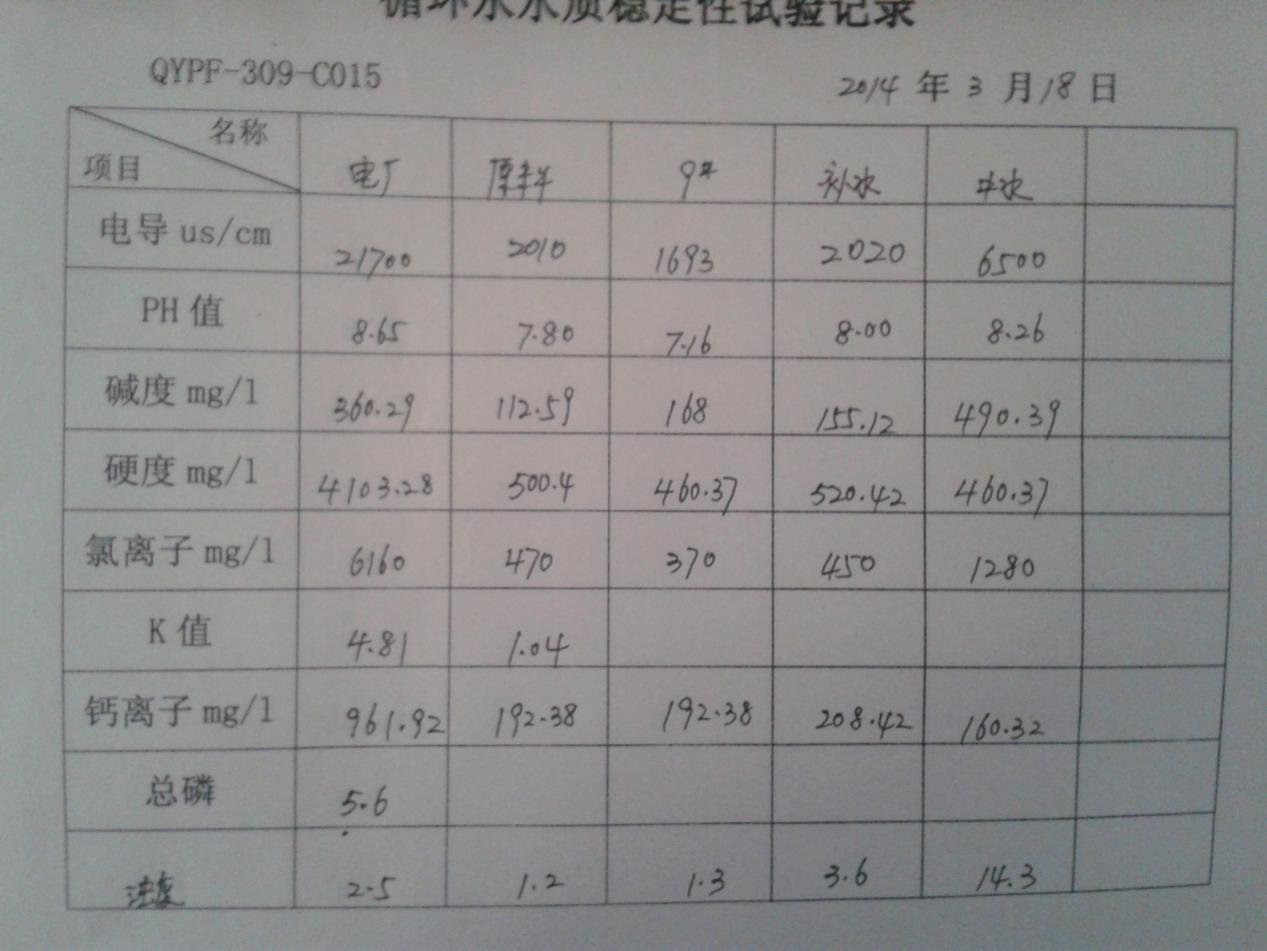 循环水水质稳定性试验记录
QYPF-309-C015 2014 年 3 月 18 日
名称
项目 电厂 原样 9# 补水 中水
电导 us/cm 21700 2010 1693 2020 6500
PH 值 8.65 7.80 7.16 8.00 8.26
碱度 mg/l 360.29 112.59 168 155.12 490.39
硬度 mg/l 4103.28 500.4 460.37 520.42 460.37
氯离子 mg/l 6160 470 370 450 1280
K 值 4.81 1.04
钙离子 mg/l 961.92 192.38 192.38 208.42 160.32
总磷 5.6
浊度 2.5 1.2 1.3 3.6 14.3